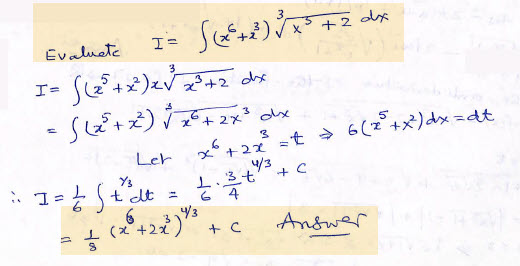 Evaluate I = ∫(x⁶+x³) ∛(x⁵+2) dx
I = ∫(x⁵+x²)x ∛(x³+2) dx
= ∫(x⁵+x²) ∛(x⁶+2x³) dx
Let x⁶+2x³ = t ⇒ 6(x⁵+x²)dx = dt
∴ I = 1/6 ∫ t^(1/3) dt = 1/6 · 3/4 t^(4/3) + C
= 1/8 (x⁶+2x³)^(4/3) + C Answer